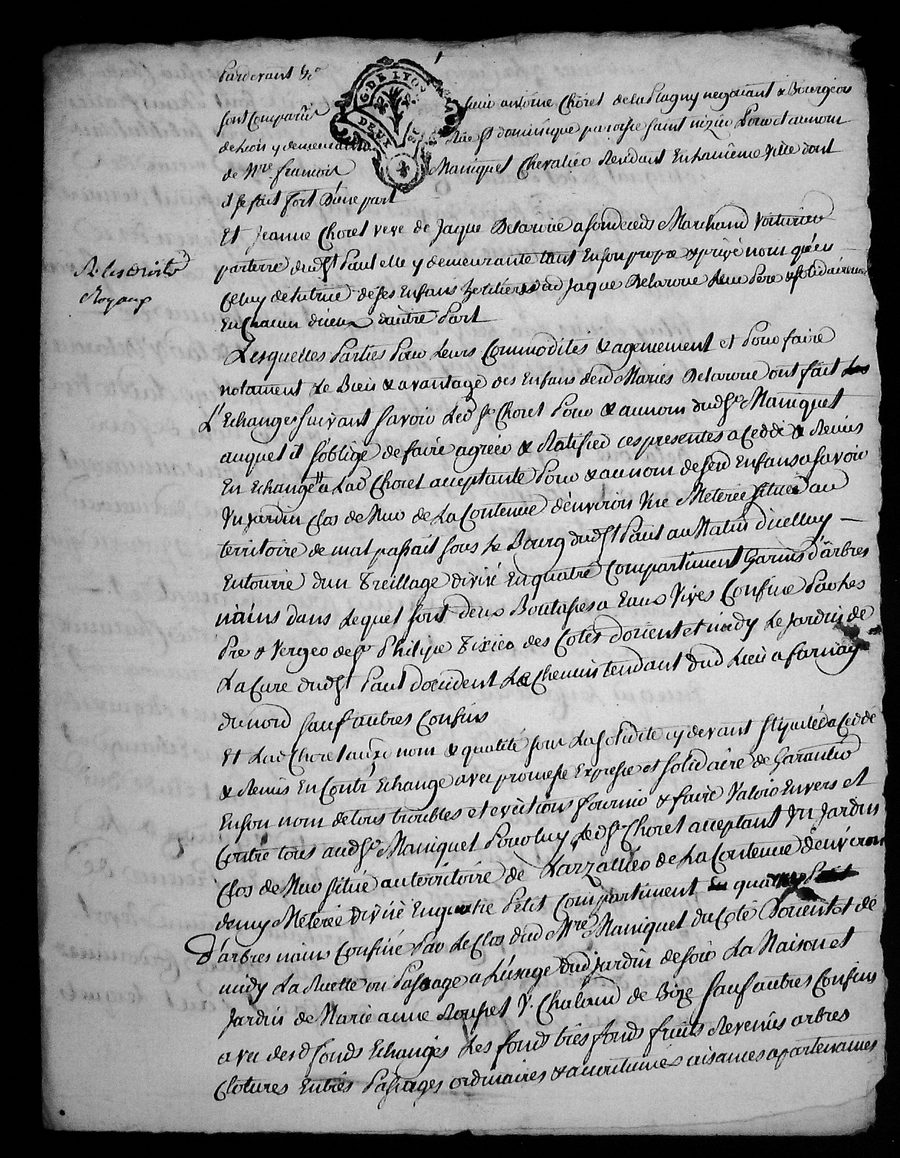 Pardevant &c
G. DE LYON
DEUX
sont Comparu sieur antoine Chorel de la Plagny negotiant & Bourgeois
de Lion y demeurant Rüe st dominique paroisse saint nizier Pour & au nom
de Mre francois Maniquet Chevalier Residant En la même ville dont
il se fait fort d'une part
Et Jeanne Chorel veve de Jaque Delaroüe a fondeeds Marchand voiturier
par terre dudt st Paul elle y demeurante tant En son propre & privé nom qu'en
Celuy de tutrice de ses Enfans heritiers du Jaque Delaroue leur Pere & solidairement
En Chacun d'ieux d'autre Part
R. les droits
Royaux
Lesquelles Parties Pour Leurs Commodites & agencement et Pour faire
notament Le Bien & avantage des Enfans deud Maries Delaroue ont fait Les
L'Echange suivant savoir Led sr Chorel Pour & au nom dudt sr Maniquet
auquel il s'oblige de faire agréer & Ratifier ces presentes a Ceddé & Remis
En Echange a Lad Chorel acceptante Pour & au nom desd Enfans a savoir
Un Jardin Clos de Mur de La Contenue d'environ Une Meterée situé au
territoire de mal passait sous Le Bourg dudt st Paul au Matin d'icelluy
Entourré d'un treillage divisé En quatre Compartiment Garnis d'arbres
nains dans Lequel sont deux Boutasses a Eaux Vives Confiné Par les
Pre & Verger de sr Philipe tixier des Cotés d'orient et midy Le Jardin de
La Cure dudt st Paul d'occident Le Chemin tendant dud Lieu a farnay
du nord sauf autres Confins
Et Lad Chorel auxd nom & qualité sous La solidité cy devant stipulé a Ceddé
& Remis En Contr'Echange avec promesse Expresse et solidaire de Garantir
En son nom de tous troubles et evictions fournir & faire Valoir Envers et
Contre tous audt sr Maniquet Pour luy Le dt sr Chorel acceptant Un Jardin
Clos de Mur situé au territoire de Lazzallier de La Contenue d'environ
demy Meterée divisé En quatre Petit Compartiment
D'arbres nains Confiné Par Le Clos dud Mre Maniquet du Coté d'orient de
midy La Ruette ou Passage a L'usage dud Jardin de soir La Maison et
Jardin de Marie anne Roussel Ve Chaland de Bize sauf autres Confins
avec desd fonds Echangés Les fonds tres fonds fruits Revenus arbres
Clotures Entrées Passages ordinaires & acoutumés aisances apartenances